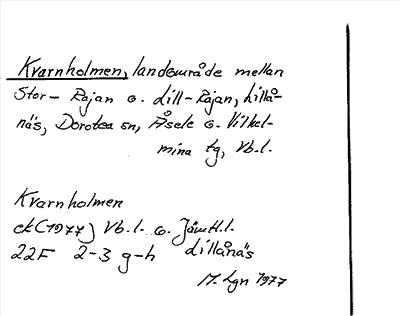 Kvarnholmen, landområde mellan
Stor-Rajan o. Lill-Rajan, Lillå-
näs, Dorotea sn, Åsele o. Vilhel-
mina tg, Vb.l.
Kvarnholmen
ek(1977) Vb.l. o. Jämtl.l.
22F 2-3 g-h Lillånäs
M. Lgn 1977